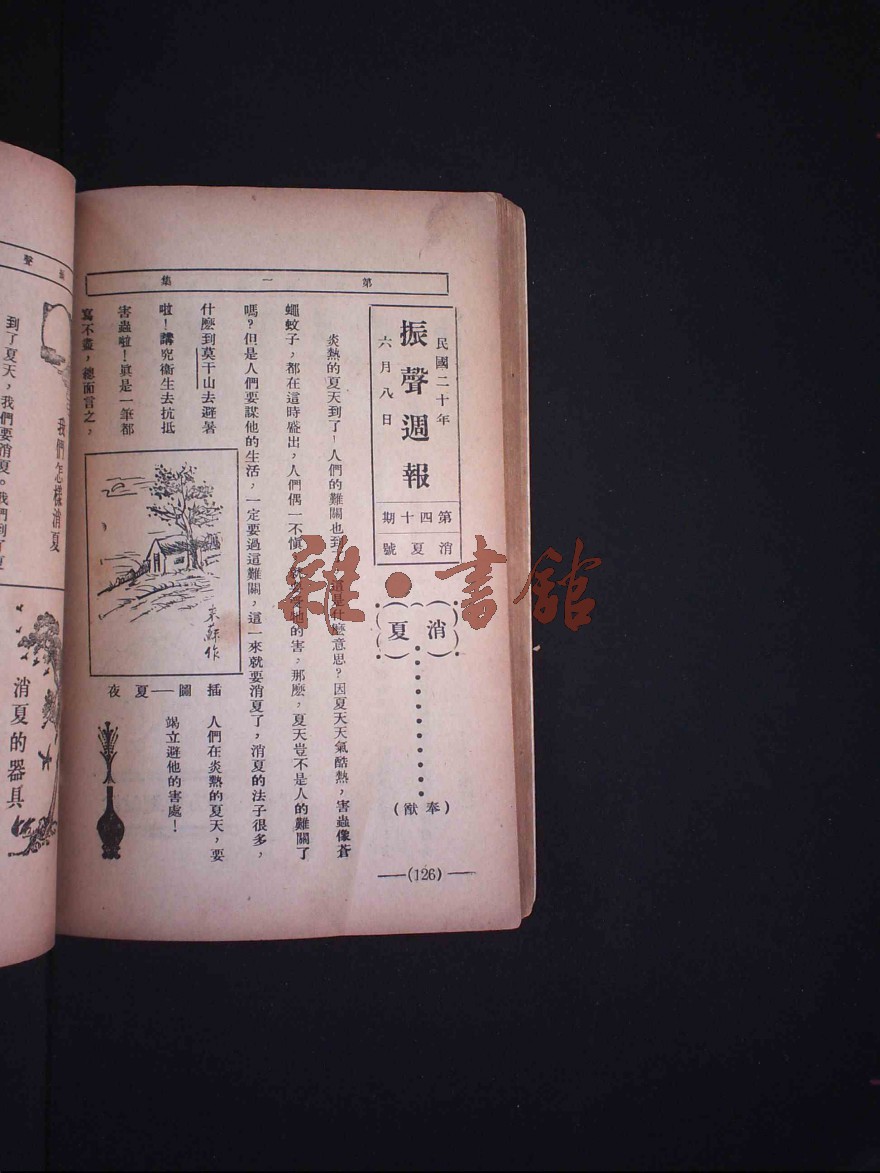 第一集
民國二十年
六月八日
振聲週報
第四十期
消夏號
消夏
(奉猷)
炎熱的夏天到了!人們的難關也到了,這是什麼意思?因夏天天氣酷熱,害蟲像蒼
蠅蚊子,都在這時盛出,人們偶一不愼,就受各他的害,那麽,夏天豈不是人的難關了
嗎?但是人們要謀他的生活,一定要過這難關,這一來就要消夏了,消夏的法子很多,
什麽到莫干山去避暑
啦!講究衞生去抗抵
害蟲啦!眞是一筆都
寫不盡,總面言之,
人們在炎熱的夏天,要
竭立避他的害處!
插圖——夏夜
未蘇作
——(126)——
聲
我們怎樣消夏
到了夏天,我們要消夏。我們到了夏
消夏的器具
雜·書館